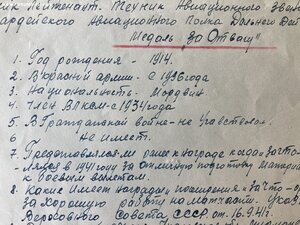 Лейтенант. Техник Авиационного Звена
Авиационного Полка Дальнего Дей
Медаль "за Отвагу"
1. Год рождения - 1914.
2. В красной армии - С 1936 года
3. Национальность - Мордвин.
4. Член ВЛКСМ с 1934 года
5. В Гражданской войне - не участвовал.
6. Не имеет.
7. Представлялся ли ранее к награде когда и за что
лялся в 1941 году за отличную подготовку материал
к боевым вылетам.
8. Какие имеет награды, поощрения и за что -
за хорошую работу на матчасти. Указ
Верховного Совета СССР от 16.9.41г.